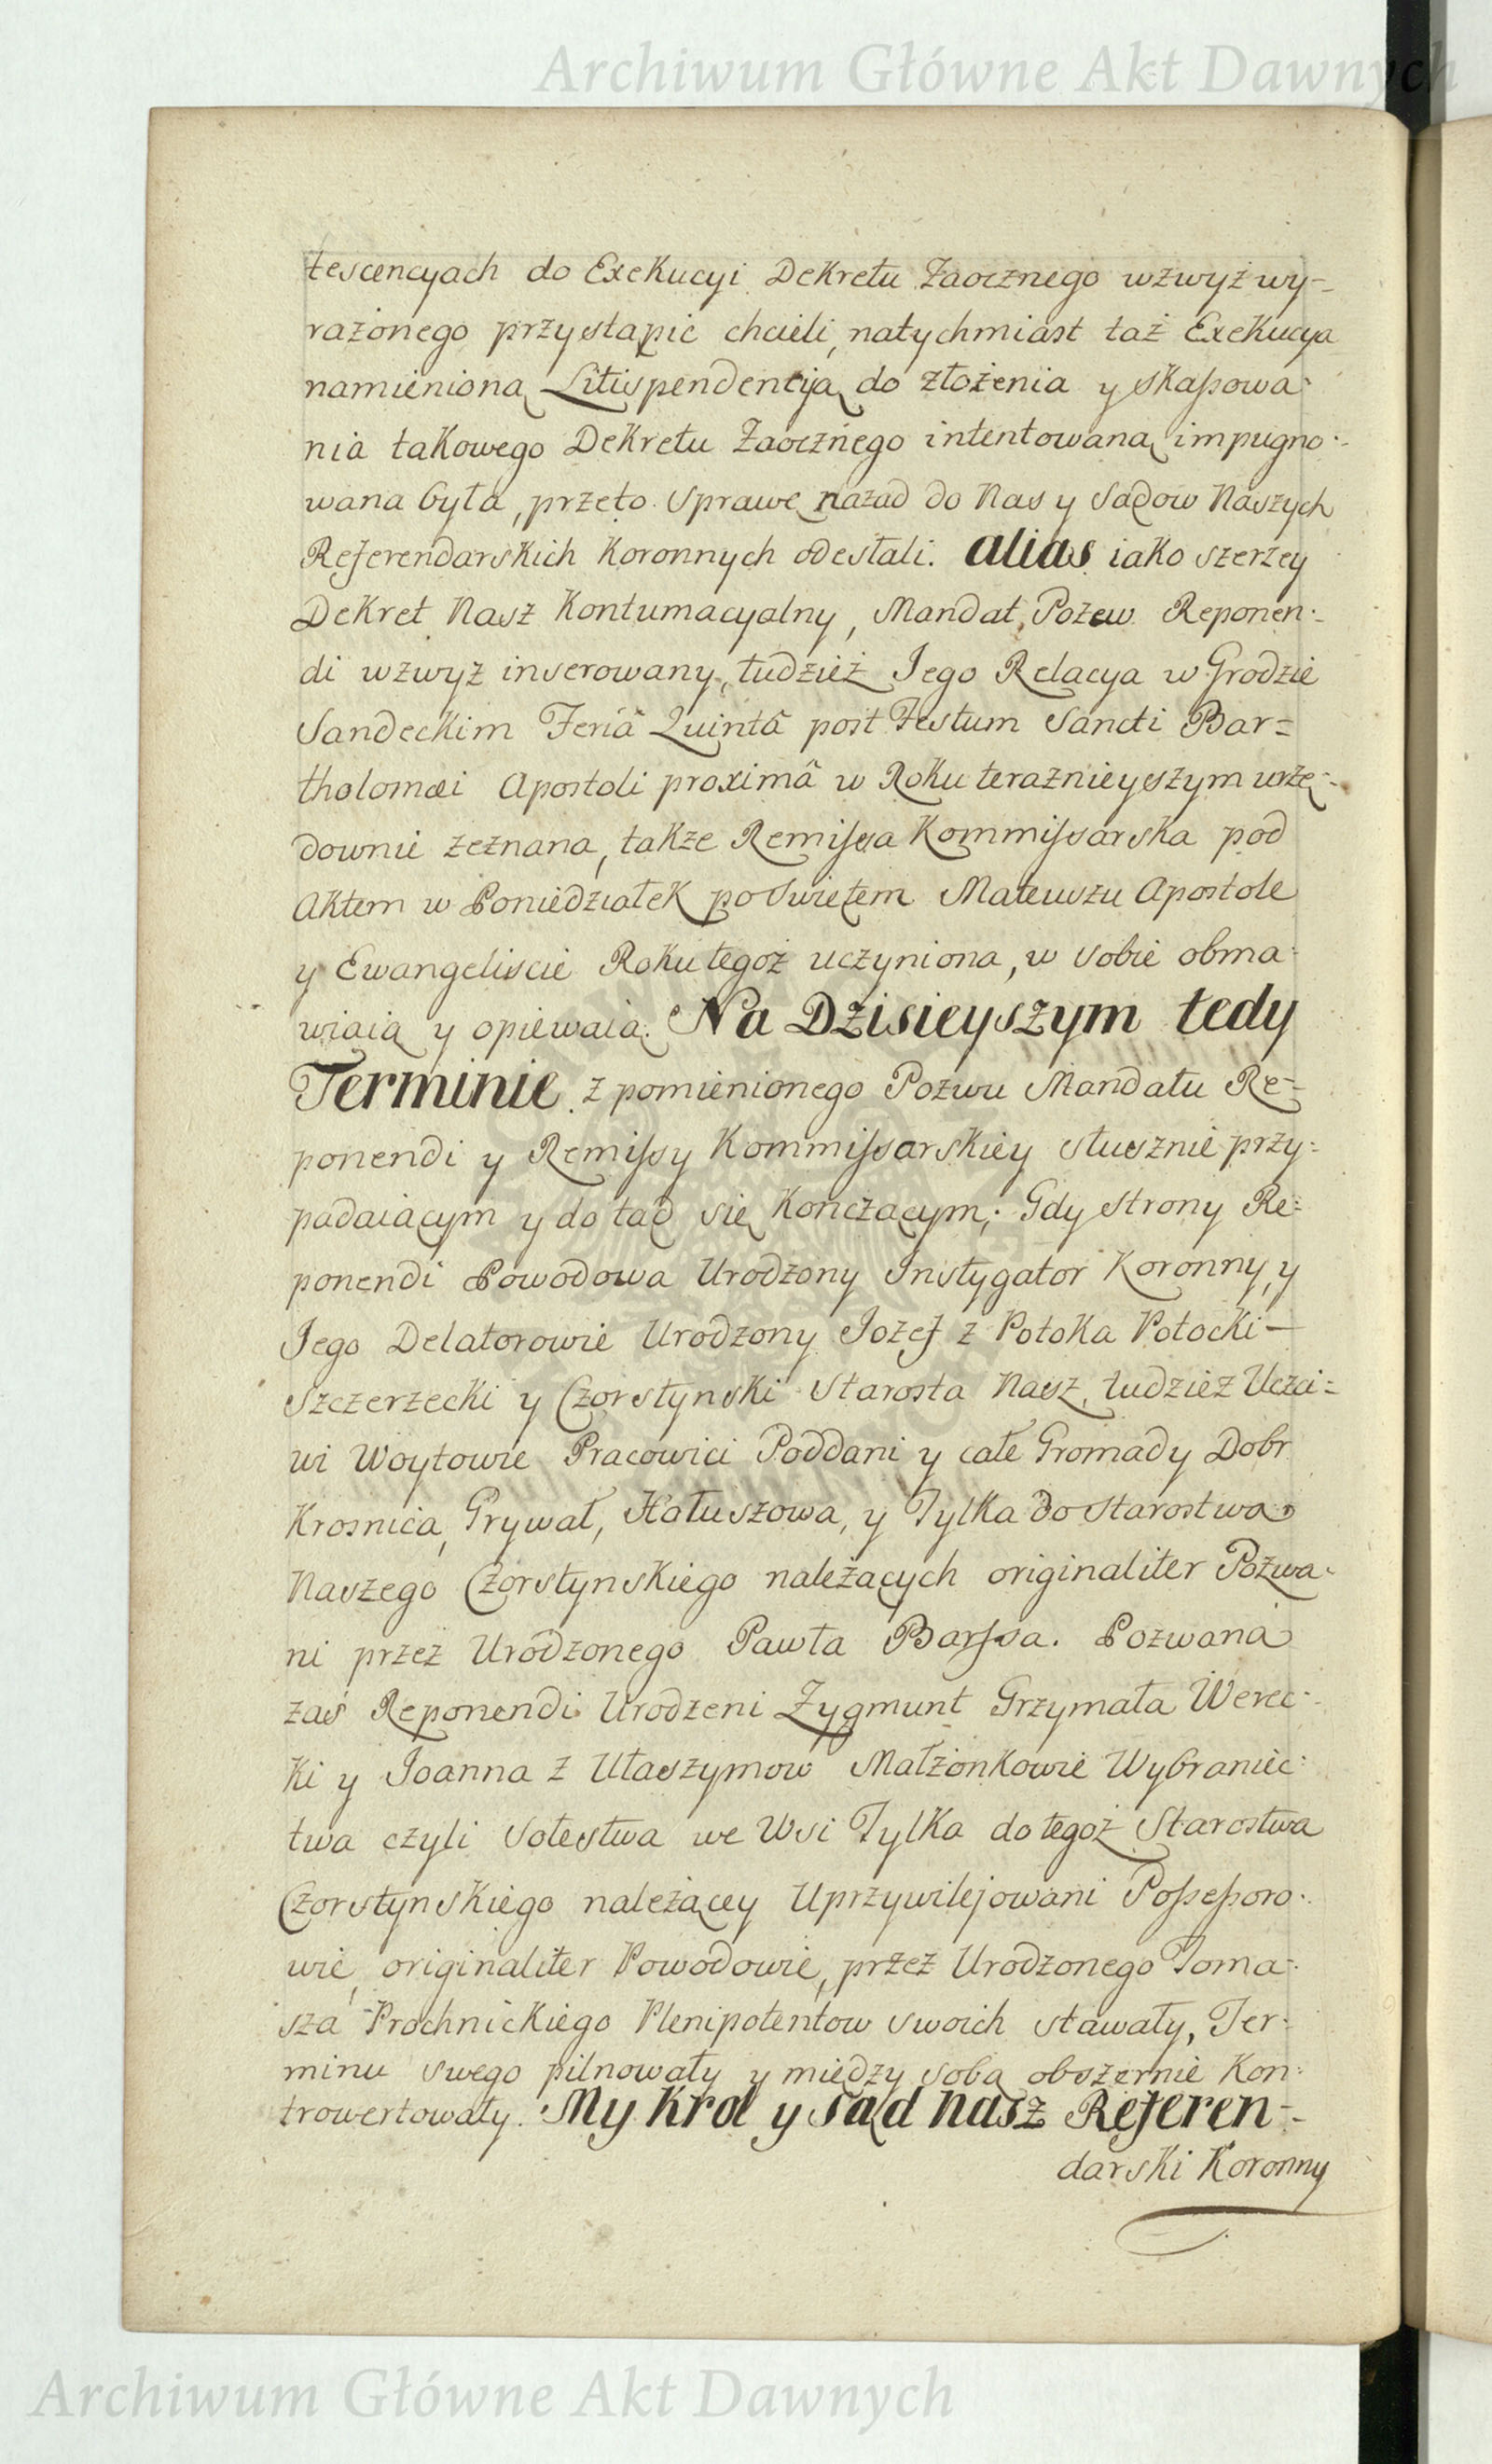 Archiwum Główne Akt Dawnych
tescencyach do Exekucyi Dekretu Zaocznego wzwyż wy-
rażonego przystąpić chcieli, natychmiast taż Exekucya
namienioną Litispendencyją do złożenia y skassowa-
nia takowego Dekretu Zaocznego intentowaną impugno-
wana była, przeto Sprawę nazad do Nas y Sądow Naszych
Referendarskich Koronnych odesłali. alias iako szerzey
Dekret Nasz Kontumacyalny, Mandat, Pozew Reponen-
di wzwyż inserowany, tudzież Jego Relacya w Grodzie
Sandeckim Feriâ Quintâ post Festum Sancti Bar=
tholomæi Apostoli proximâ w Roku teraznieyszym urzę-
downie zeznana, także Remissa Kommissarska pod
Aktem w Poniedziałek po Swiętem Mateuszu Apostole
y Ewangeliscie Roku tegoż uczyniona, w sobie obma-
wiaią y opiewaią. Na Dzisieyszym tedy
Terminie z pomienionego Pozwu Mandatu Re=
ponendi y Remissy Kommissarskiey słusznie przy-
padaiącym y dotąd się kończącym; Gdy Strony Re=
ponendi Powodowa Urodzony Instygator Koronny, y
Jego Delatorowie Urodzony Jozef z Potoka Potocki —
Szczerzecki y Czorstynski Starosta Nasz, tudzież Uczci=
wi Woytowie Pracowici Poddani y całe Gromady Dobr
Krosnica, Grywał, Hałuszowa, y Tylka do Starostwa
Naszego Czorstynskiego należących originaliter Pozwa-
ni przez Urodzonego Pawła Barssa. Pozwana
zaś Reponendi Urodzeni Zygmunt Grzymała Werec-
ki y Joanna z Ułaszymow Małżonkowie Wybraniec-
twa czyli Sołestwa we Wsi Tylka do tegoż Starostwa
Czorstynskiego należącey Uprzywilejowani Possessoro-
wie, originaliter Powodowie, przez Urodzonego Toma-
sza Prochnickiego Plenipotentow swoich stawały, Ter-
minu swego pilnowały y między sobą obszernie Kon-
trowertowały. My Krol y Sąd Nasz Referen-
darski Koronny
Archiwum Główne Akt Dawnych